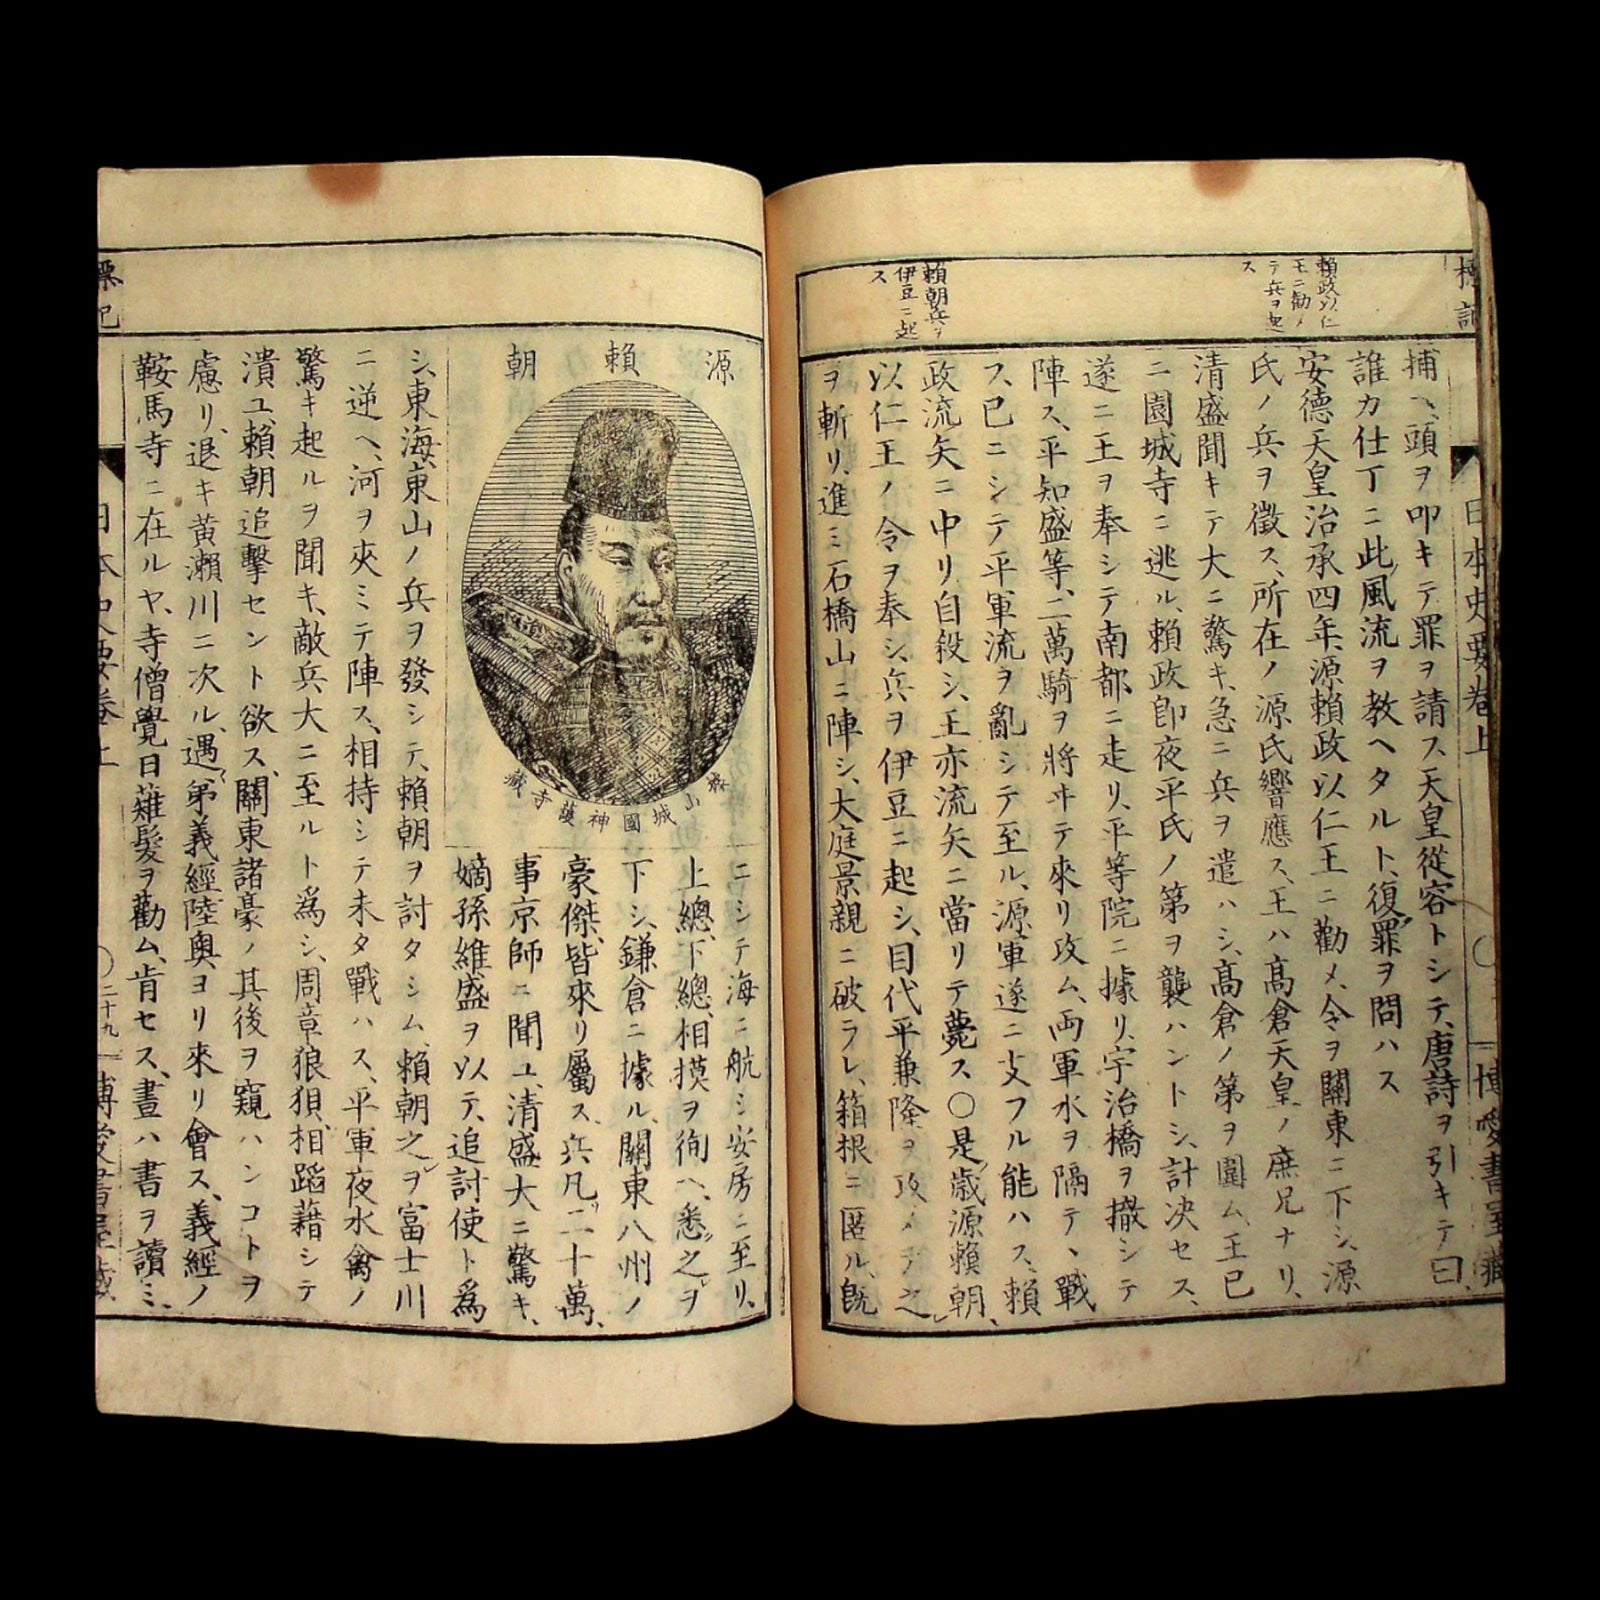 標記
賴政以仁
王ニ勸メ
テ兵ヲ起
ス
賴朝兵ヲ
伊豆ニ起
ス
日本史要卷上
博愛書屋藏
捕ヘ、頭ヲ叩キテ罪ヲ請ス、天皇從容トシテ、唐詩ヲ引キテ曰、
誰カ仕丁ニ此風流ヲ教ヘタルト、復罪ヲ問ハス
安德天皇治承四年、源賴政以仁王ニ勸メ、令ヲ關東ニ下シ、源
氏ノ兵ヲ徵ス、所在ノ源氏響應ス、王ハ高倉天皇ノ庶兄ナリ、
清盛聞キテ大ニ驚キ、急ニ兵ヲ遣ハシ、高倉ノ第ヲ圍ム、王已
ニ園城寺ニ逃ル、賴政卽夜平氏ノ第ヲ襲ハントシ、計決セス、
遂ニ王ヲ奉シテ南都ニ走リ、平等院ニ據リ、宇治橋ヲ撤シテ
陣ス、平知盛等、二萬騎ヲ將ヰテ來リ攻ム、両軍水ヲ隔テ、戰
フ、已ニシテ平軍流ヲ亂シテ至ル、源軍遂ニ支フル能ハス、賴
政流矢ニ中リ自殺シ、王亦流矢ニ當リテ薨ス〇是歲源賴朝、
以仁王ノ令ヲ奉シ、兵ヲ伊豆ニ起シ、目代平兼隆ヲ攻メテ之
ヲ斬リ、進ミ石橋山ニ陣シ、大庭景親ニ破ラレ、箱根ニ匿ル、既
源賴朝
山城國神護寺藏
ニシテ海ニ航シ安房ニ至リ、
上總、下總、相摸ヲ徇ヘ、悉之ヲ
下シ、鎌倉ニ據ル、關東八州ノ
豪傑、皆來リ屬ス、兵凡二十萬、
事京師ニ聞ユ、清盛大ニ驚キ、
嫡孫維盛ヲ以テ、追討使ト爲
シ、東海東山ノ兵ヲ發シテ、賴朝ヲ討タシム、賴朝之ヲ富士川
ニ逆ヘ、河ヲ夾ミテ陣ス、相持シテ未タ戰ハス、平軍夜水禽ノ
驚キ起ルヲ聞キ、敵兵大ニ至ルト爲シ、周章狼狽、相蹈藉シテ
潰ユ、賴朝追擊セント欲ス、關東諸豪ノ其後ヲ窺ハンコトヲ
慮リ、退キ黃瀨川ニ次ル、遇弟義經陸奧ヨリ來リ會ス、義經ノ
鞍馬寺ニ在ルヤ、寺僧覺日薙髮ヲ勸ム、肯セス、晝ハ書ヲ讀ミ、
標記
日本史要卷上
〇二十九
博愛書屋藏